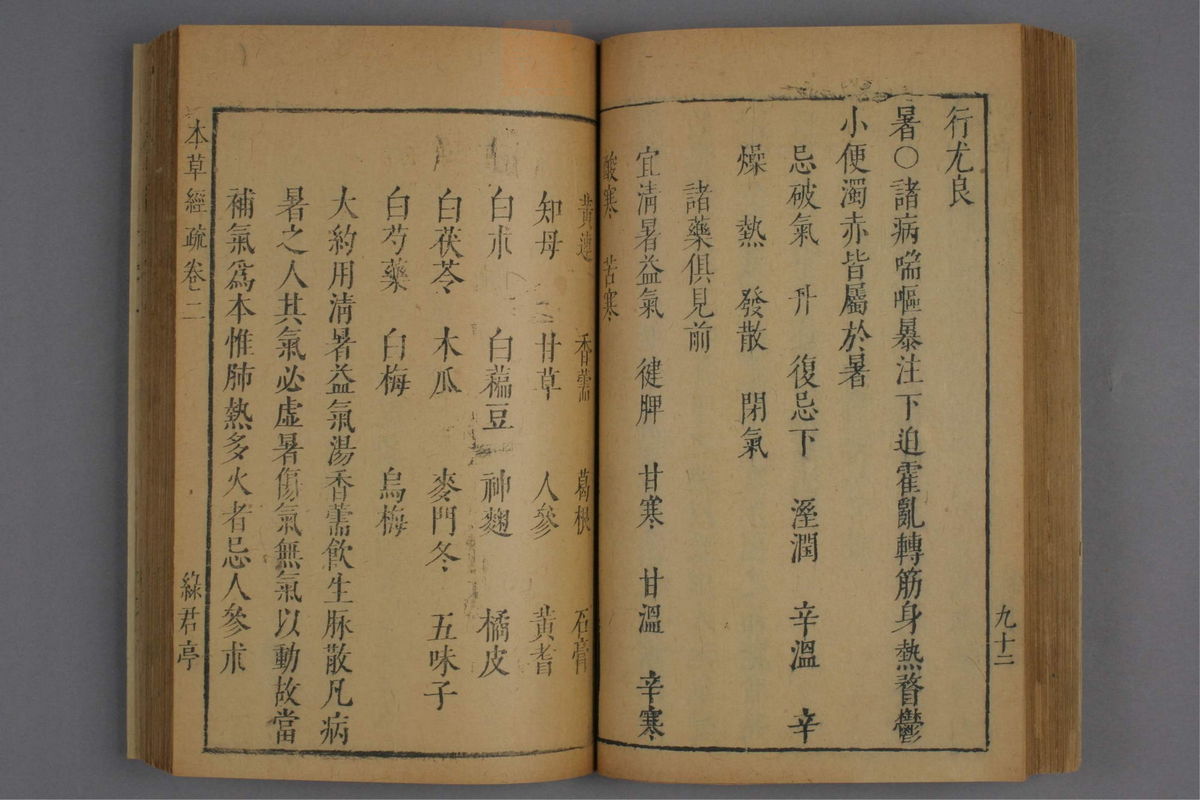 行尤良
暑〇諸病喘嘔暴注下迫霍亂轉筋身熱瞀鬱
小便濁赤皆屬於暑
忌破氣 升 復忌下 溼潤 辛溫 辛
燥 熱 發散 閉氣
諸藥俱見前
宜清暑益氣 健脾 甘寒 甘溫 辛寒
酸寒 苦寒
九十二
黃連 香薷 葛根 石膏
知母 甘草 人參 黃耆
白朮 白藊豆 神麯 橘皮
白茯苓 木瓜 麥門冬 五味子
白芍藥 白梅 烏梅
大約用清暑益氣湯香薷飲生脉散凡病
暑之人其氣必虛暑傷氣無氣以動故當
補氣爲本惟肺熱多火者忌人參朮
本草經疏卷二 綠君亭